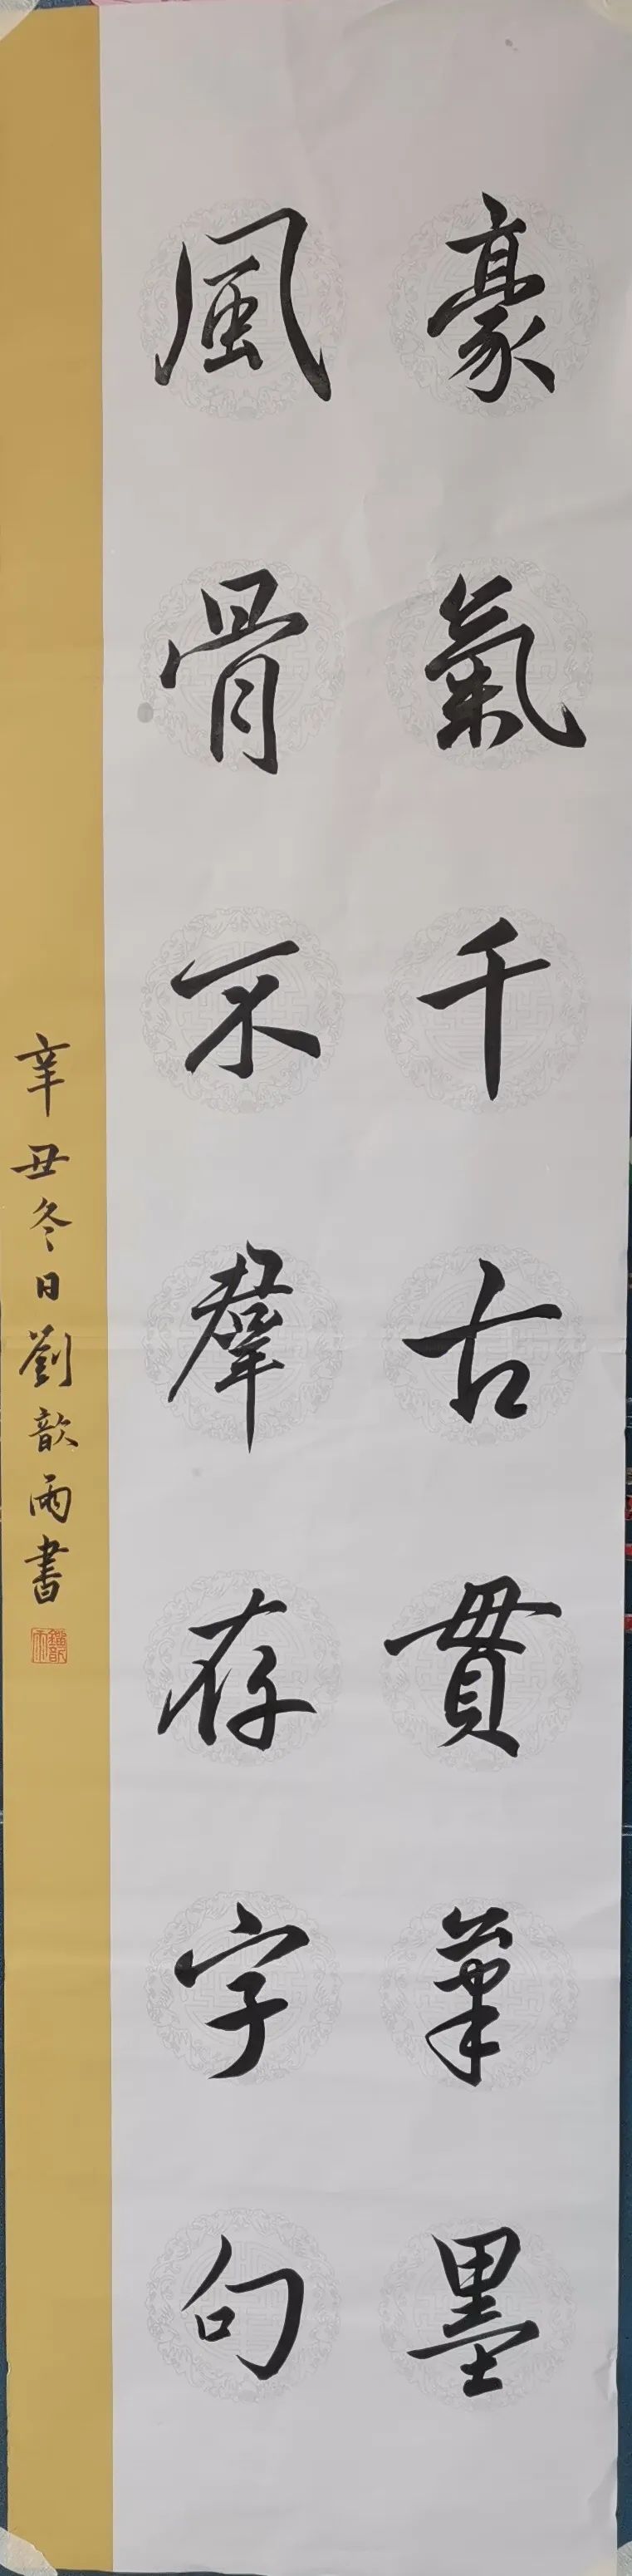 豪氣千古貫筆墨
風骨不羣存字句
辛丑冬日劉歆雨書